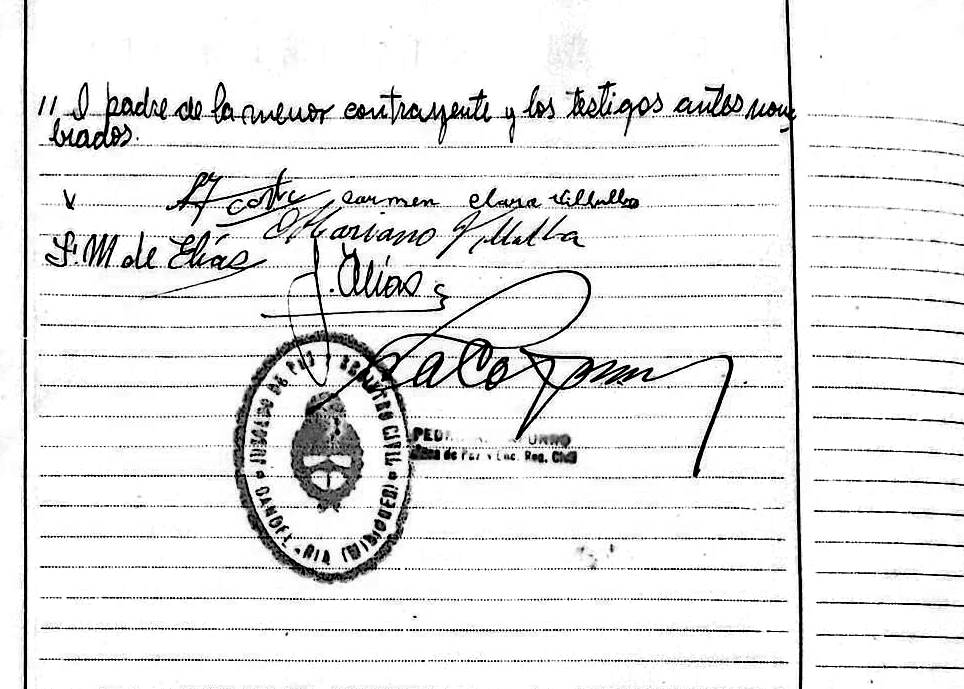 // el padre de la menor contrayente y los testigos antes nom
brados.
Carmen Clara Villalba
Mariano Villalba
F. M de Elías
J. Elías
JUZGADO DE PAZ Y REGISTRO CIVIL
CANDELARIA (MISIONES)
Juez de Paz y Enc. Reg. Civil